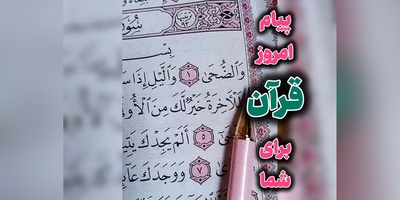 پیام
امروز
قرآن
برای
شما
سُورَ
بِسْـ
وَالضُّحَىٰ ١ وَاللَّيْلِ إِذَا سَـ
لَلْآخِرَةُ خَيْرٌ لَكَ مِنَ الْأُو
٥ أَلَمْ يَجِدْكَ يَتِيـ
٧ وَوَجَدَكَ عَا